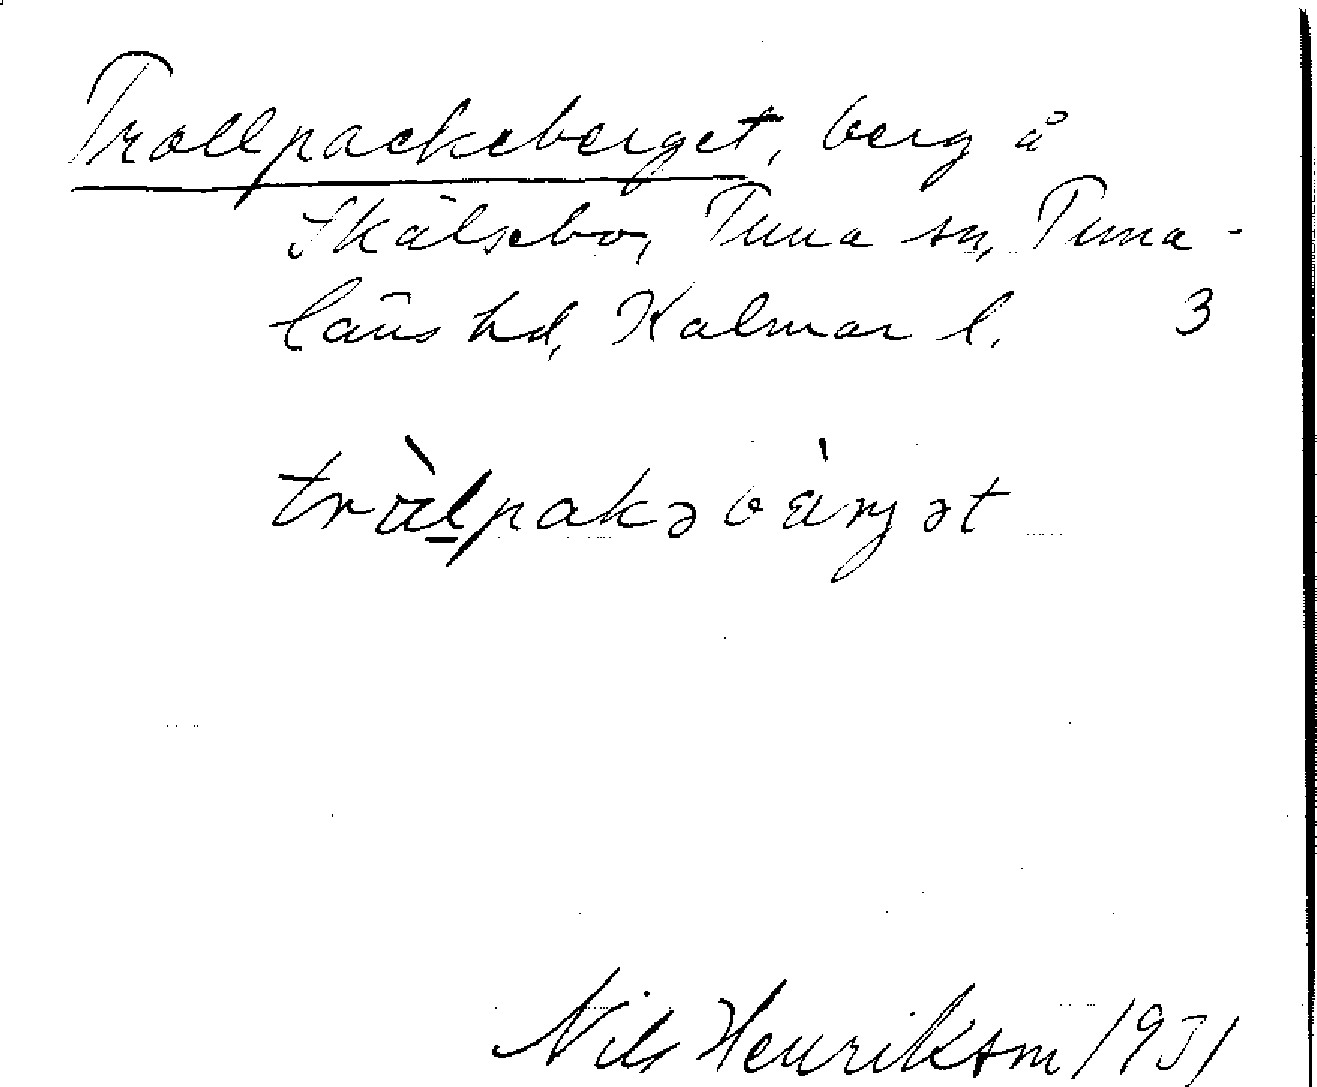 Trollpackeberget, berg å
Skälsebo, Tuna sn, Tuna-
läns hd, Kalmar l. 3
trålpakəbärjət
Nils Henrikson 1951